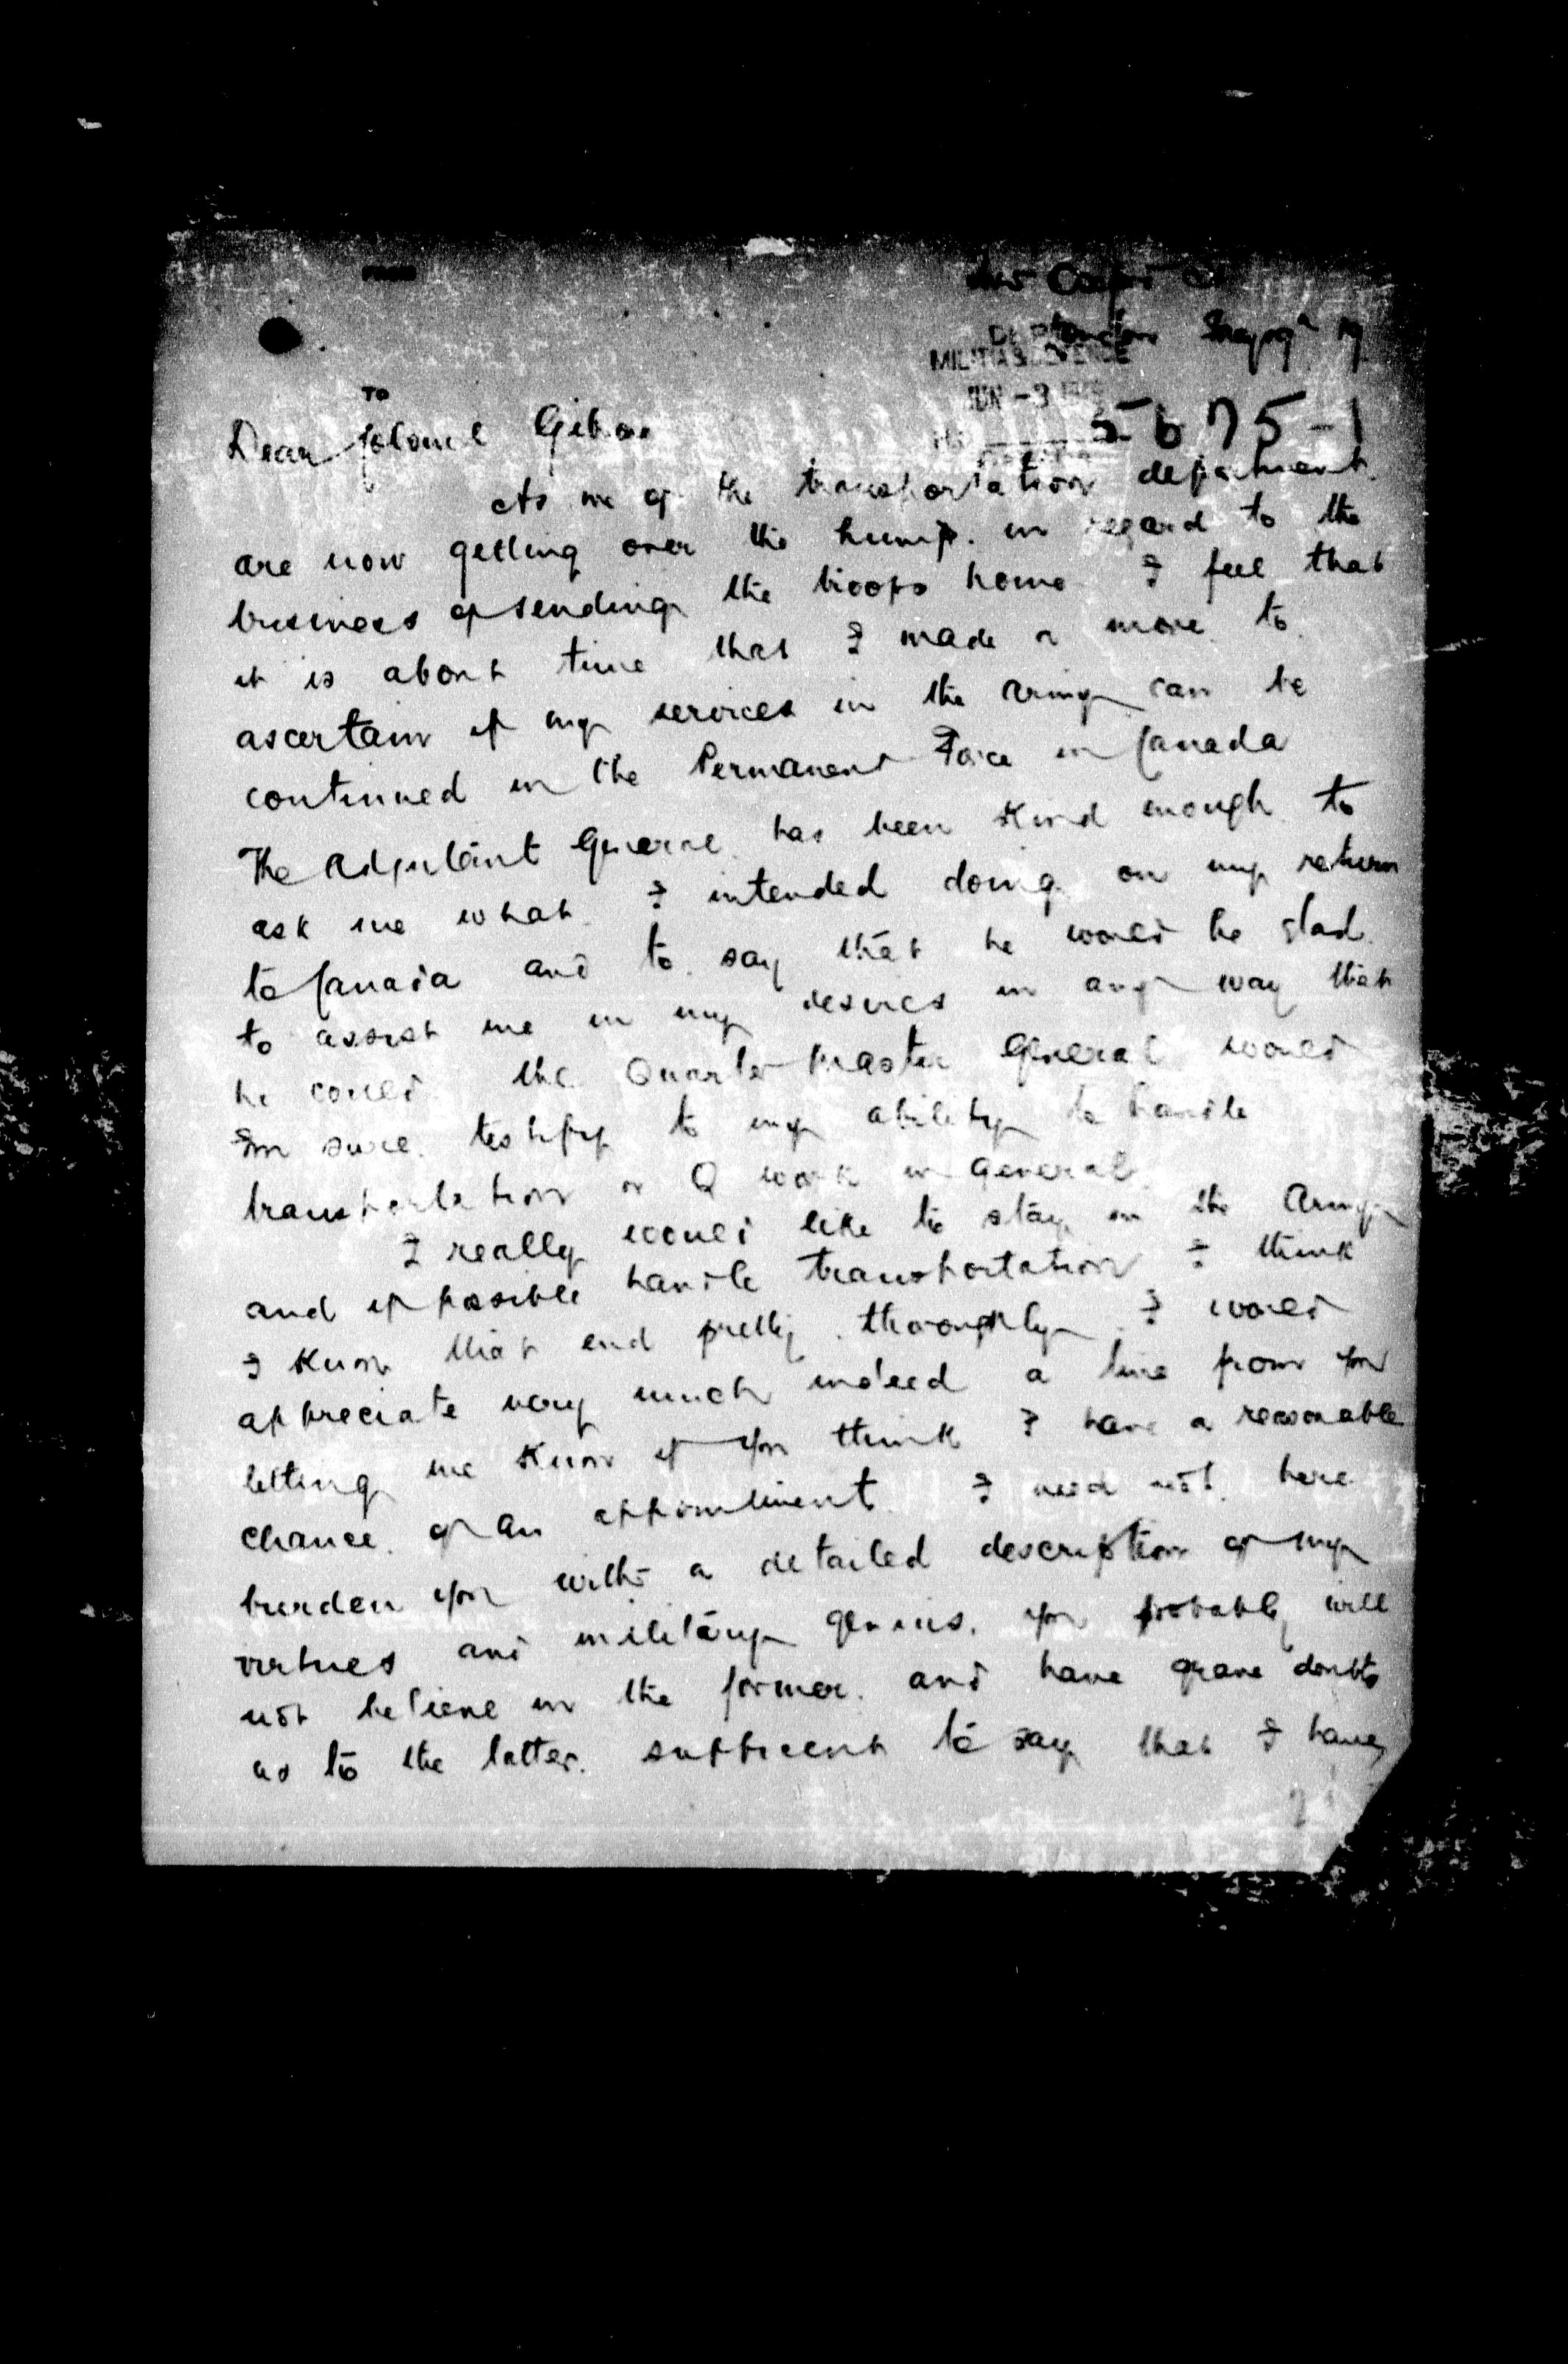 FROM
London
DEPT
MILITIA & DEFENCE
JUN -3
5675-1
TO
Dear Colonel
As we of the transportation department
are now getting over the hump. in regard to the
business of sending the troops home I feel that
it is about time that I made a move to
ascertain if my services in the Army can be
continued in the Permanent Force in Canada
The Adjutant General has been kind enough to
ask me what I intended doing on my return
to Canada and to say that he would be glad
to assist me in my desires in any way that
he could. the Quarter Master General would
Im sure. testify to my ability to handle
transportation or Q work in general.
I really would like to stay in the Army
and if possible handle transportation I think
I know that end pretty thoroughly I would
appreciate very much indeed a line from you
letting me know if you think I have a reasonable
chance of an appointment. I need not here
burden you with a detailed description of my
virtues and military genius. you probably will
not believe in the former. and have grave doubts
as to the latter. sufficient to say that I have